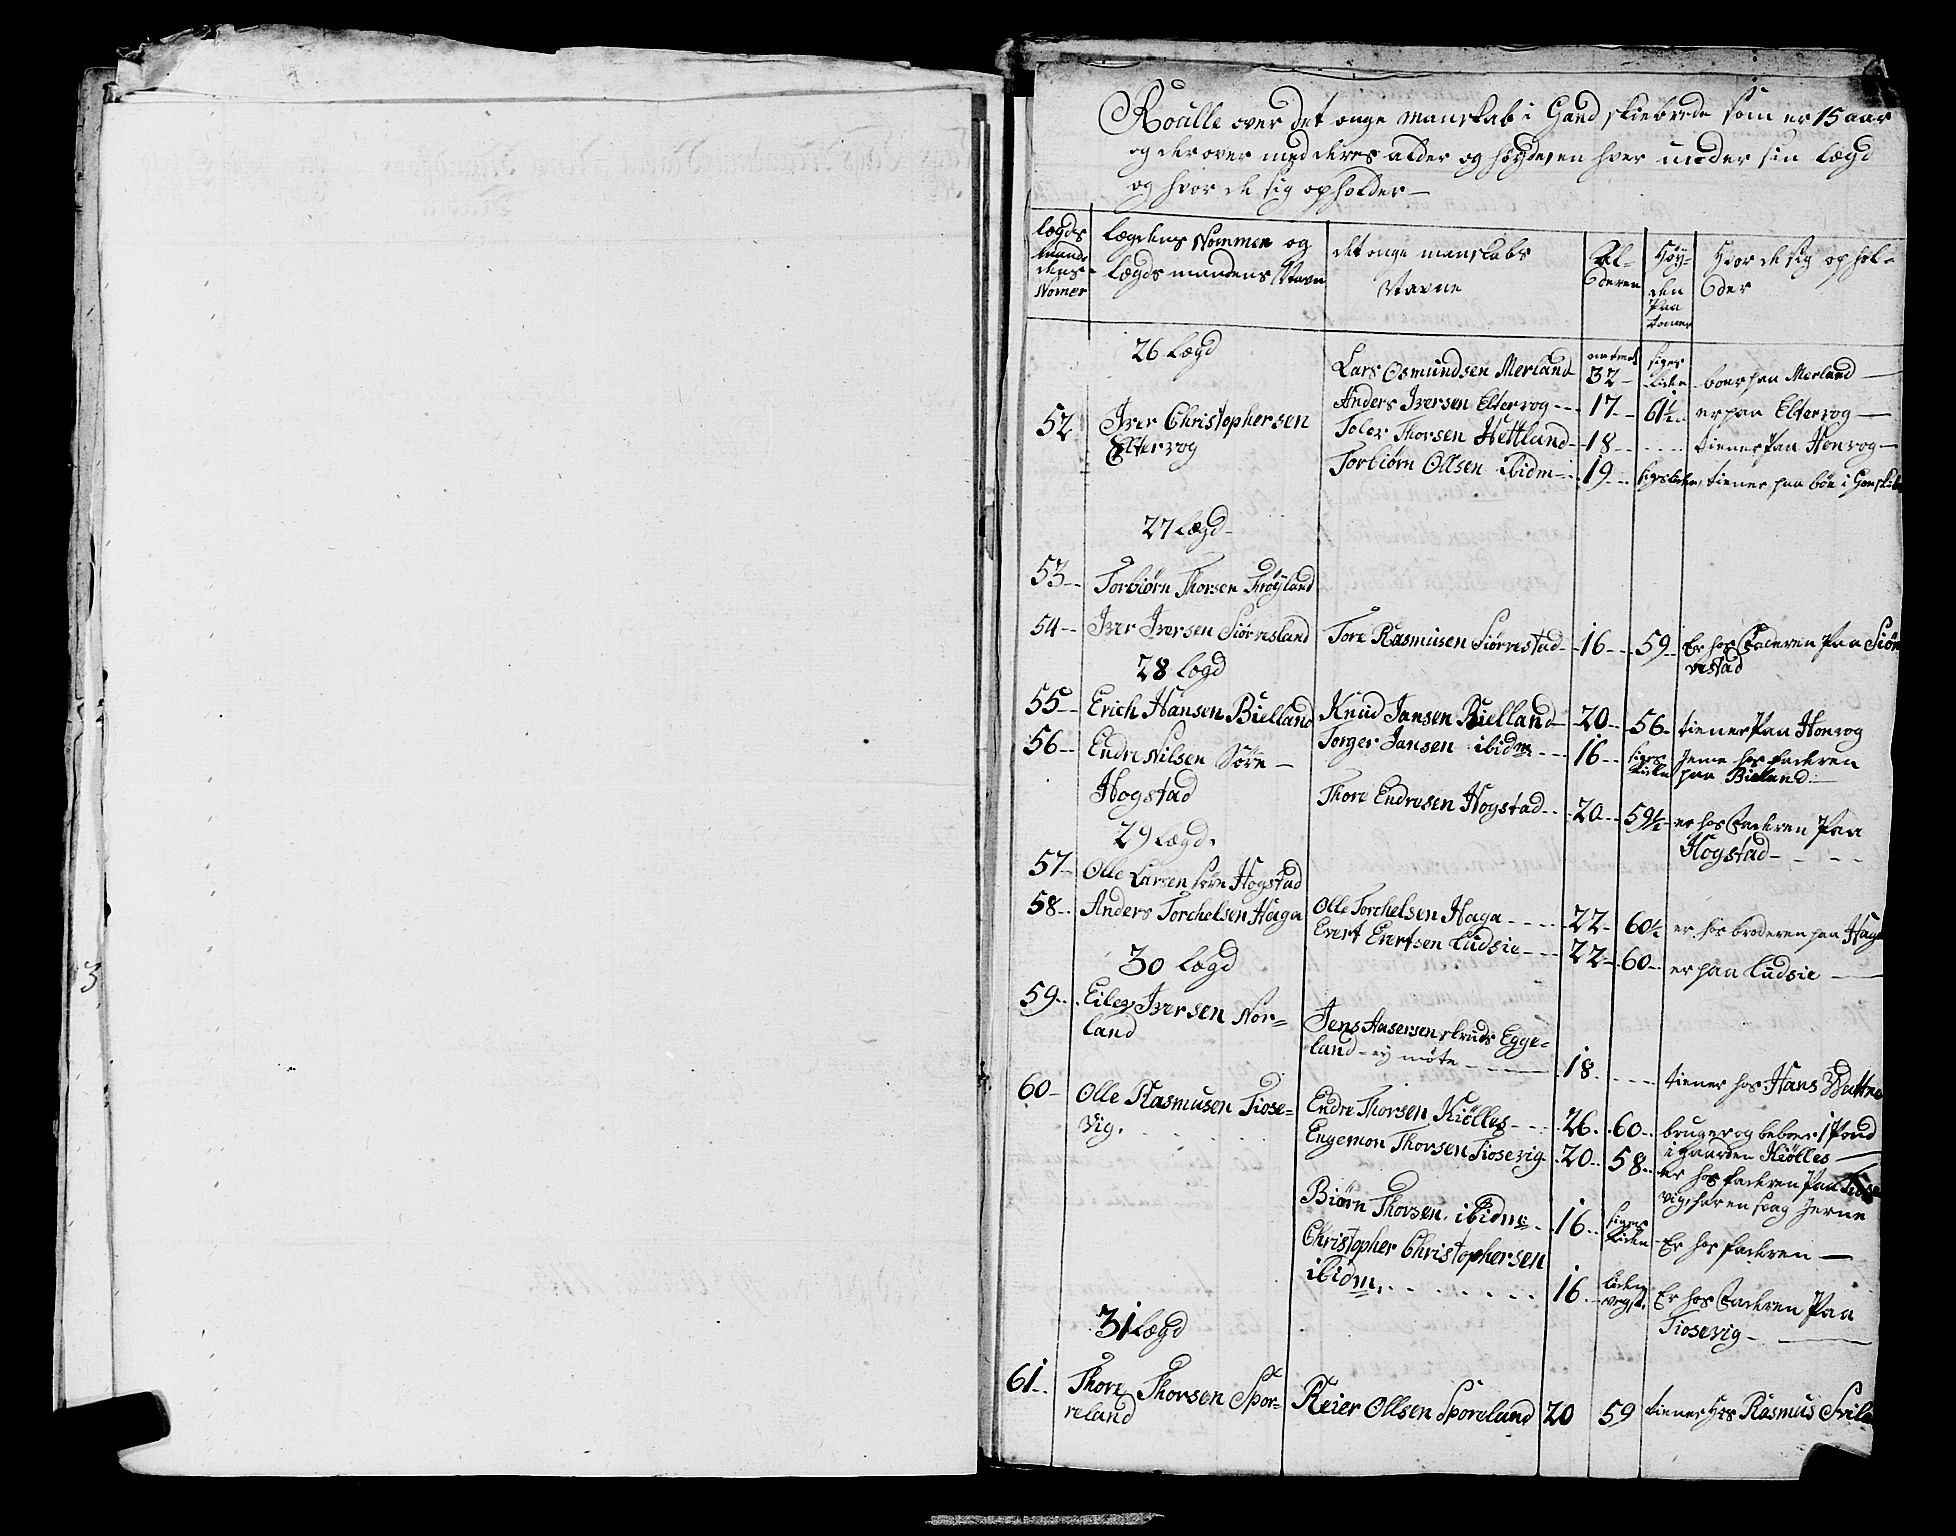 Roulle over det onge manskab i Gand skiebrede som er 15 aar
og der over med deres alder og høyde, en hver under sin lægd
og hvor de sig opholder —
lægds mandens Nomer | lægdens Nommen og lægds mandens Navn | det onge manskabs Navne | Alderen | Høyden Paa tomer | Hvor de sig opholder
26 Lægd
Lars Osmundsen Merland 32 — siges liden boer paa Merland —
52 Iver Christophersen Eltervog
Anders Iversen Eltervog --- 17 -- 61½ er paa Eltervog —
Toler Thorsen Hettland - 18 ---- tiener Paa Honvog —
Torbiørn Ollsen ibidm -- 19 -- siges liden, tiener paa bøe i
27 Lægd -
53 -- Torbiørn Thorsen Frøyland
54 -- Iver Iversen Siørresland
Tore Rasmusen Siørrestad -- 16 -- 59 -- Er hos Faderen Paa Siørrestad
28 Lægd
55 -- Erich Hansen Bielland
Knud Jansen Bielland - 20 -- 56 - tiener Paa Honvog
56 -- Endre Nilsen Søre — Hogstad
Torger Jansen ibidm --- 16 -- siges liden Jeme hos faderen paa Bieland —
Thore Endresen Hogstad -- 20 -- 59½ er hos Faderen Paa Hogstad - - - -
29 Lægd.
57 -- Olle Larsen søre Hogstad
58 -- Anders Torchelsen Haga
Olle Torchelsen Haga ---- 22 - 60½ er hos broderen paa Haga
Evert Evertsen Ludsie --- 22 - 60 -- er paa Ludsie —
30 Lægd
59 -- Eilev Iversen Norland
Jens Aasersen skruds Eggeland - ey møte ---- 18 ---- tiener hos Hans
60 - Olle Rasmusen Tiosevig.
Endre Thorsen Kiølleg --- 26 -- 60 -- bruger og beboer 1 Pond i gaarden Kiølleg —
Engemon Thorsen Tiosevig 20 -- 58 -- er hos faderen Paa Tiosevig, har en svag
Biørn Thorsen. ibidm -- 16 -- siges liden - Er hos faderen —
Christopher Christophersen ibidm, ------- 16 -- liden Er hos Faderen Paa Tiosevig - —
31 Lægd
61 -- Thore Thorsen Sporreland
Reier Ollsen Sporeland 20 59 tiener hos Rasmus
3